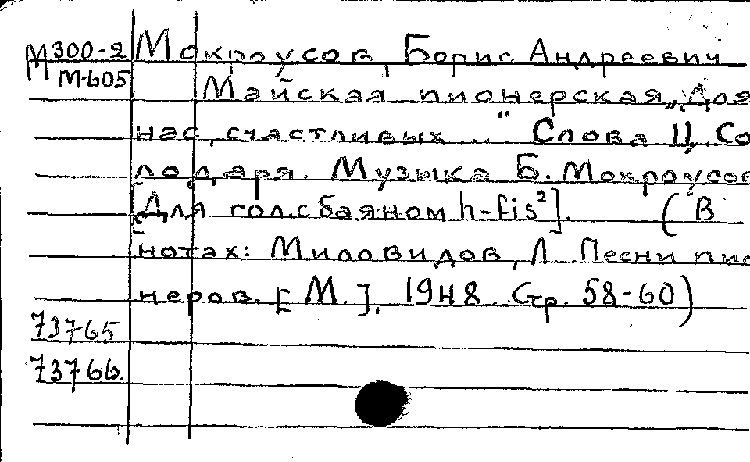 М300-2 Мокроусов, Борис Андреевич
М-605 Майская пионерская „Для
нас, счастливых ..." Слова Ц. Со
лодаря. Музыка Б. Мокроусов
[Для гол. с баяном h-fis²]. (В
нотах: Миловидов, Л. Песни пио
неров. [М.], 1948. Стр. 58-60)
73765
73766.